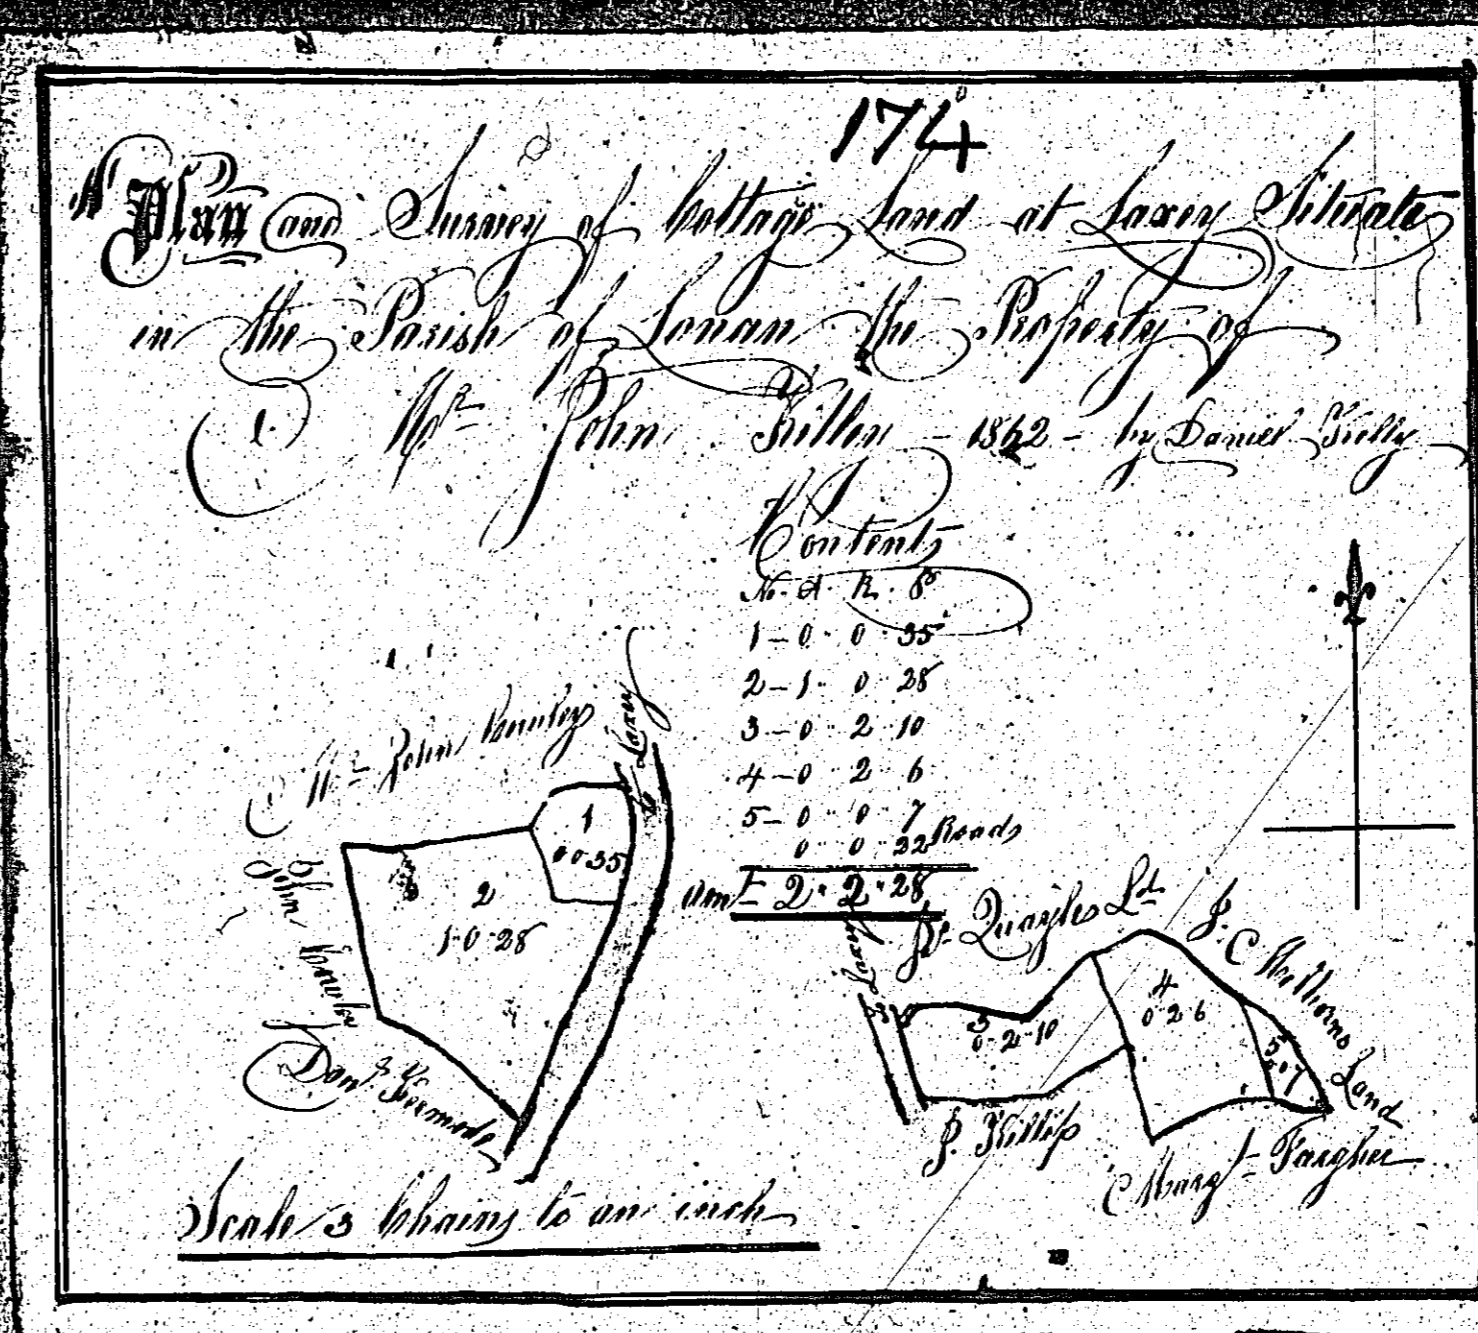 174
A Plan and Survey of Cottage Land at Laxey Situate
in the Parish of Lonan the Property of
Mr John Killey - 1862 - by Daniel Kelly
Contents
No. A. R. P
1 - 0 · 0 · 35
2 - 1 · 0 28
3 - 0 · 2 10
4 - 0 2 6
5 - 0 · 0 · 7
0 · 0 · 22 Roads
Amt 2 · 2 · 28
Mr John
To Laxey
1
0 0 35
2
1 · 0 · 28
John
Danl Kermode
To Laxey
Dr Quayles Ld
J. C
Land
3
0 · 2 · 10
4
0 · 2 6
5
0 0 7
J. Killip
Margt Fargher
Scale 3 Chains to an inch